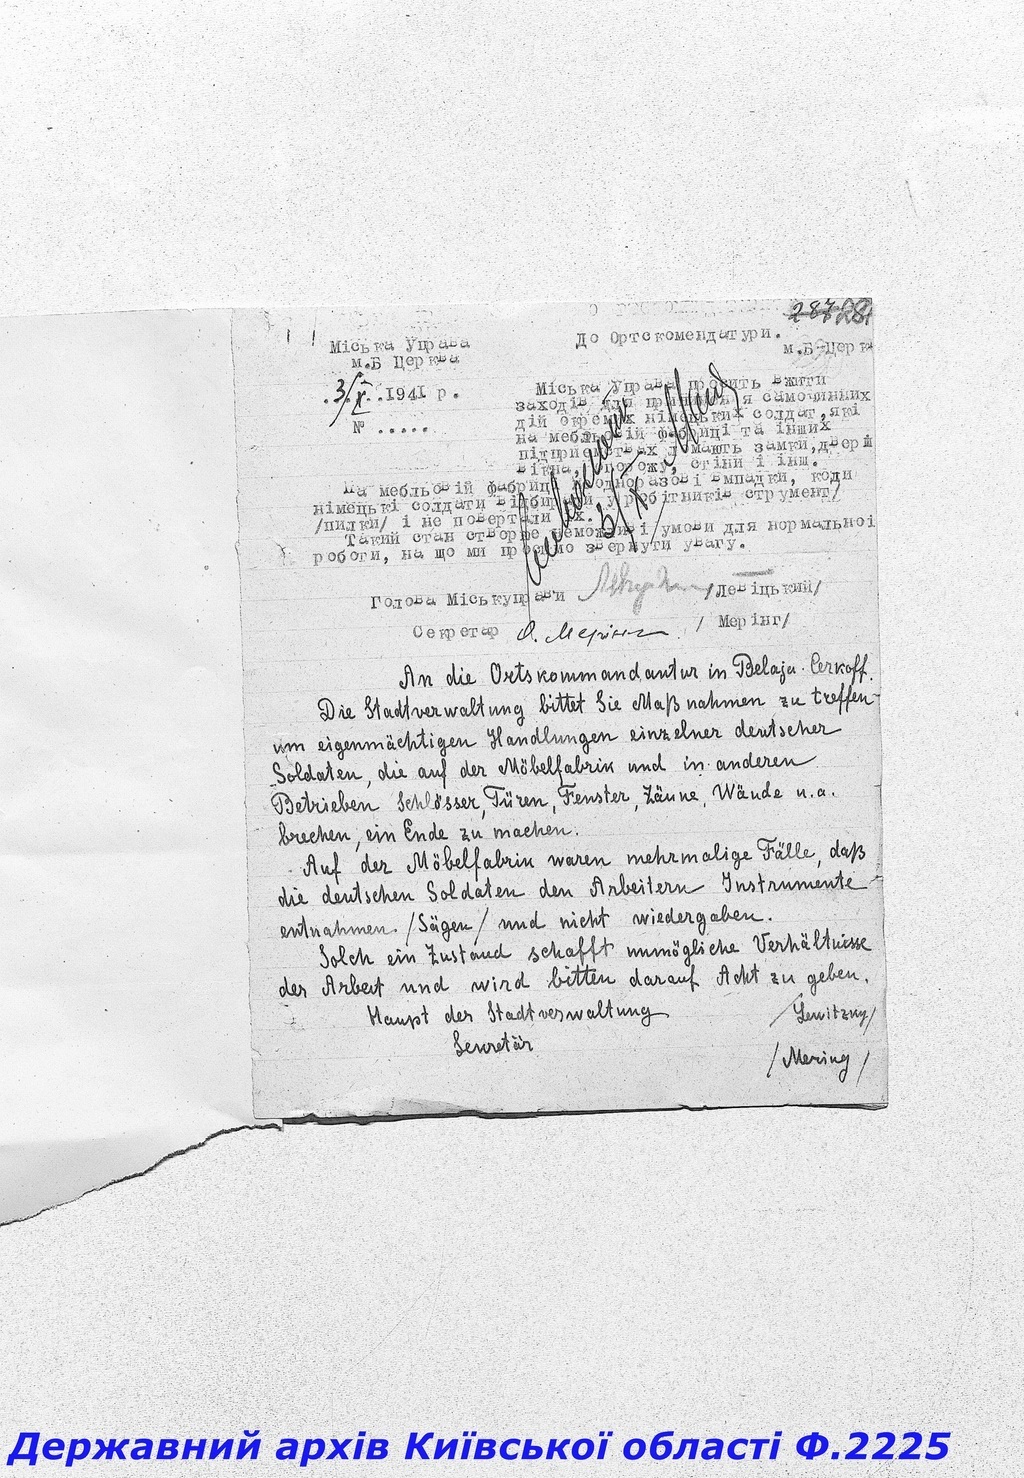 287 281
Міська Управа
м.Б Церква
До Ортскомендатури.
м.Б-Церк
3/X 1941 р.
№ .....
Міська Управа просить вжити
заходів для припинення самочинних
дій окремих німецьких солдат, які
на мебльовій фабриці та інших
підприємствах ламають замки,двері
вікна, огорожу, стіни і інш.
На мебльовій фабриці неодноразові впадки, коли
німецькі солдати відбирали у робітників струмент/
/пилки/ і не повертали їх.
Такий стан створює неможливі умови для нормальної
роботи, на що ми просимо звернути увагу.
Голова Міськуправи /Левіцький/
Секретар О. Мерінг /Мерінг/
An die Ortskommandantur in Belaja-Cerkoff.
Die Stadtverwaltung bittet Sie Maßnahmen zu treffen
um eigenmächtigen Handlungen einzelner deutscher
Soldaten, die auf der Möbelfabrik und in anderen
Betrieben Schlösser, Türen, Fenster, Zäune, Wände u.a.
brechen, ein Ende zu machen.
Auf der Möbelfabrik waren mehrmalige Fälle, daß
die deutschen Soldaten den Arbeitern Instrumente
entnahmen /Sägen/ und nicht wiedergaben.
Solch ein Zustand schafft unmögliche Verhältnisse
der Arbeit und wird bitten darauf Acht zu geben.
Haupt der Stadtverwaltung /Lewitzky/
Sekretär /Mering/
Державний архів Київської області Ф.2225